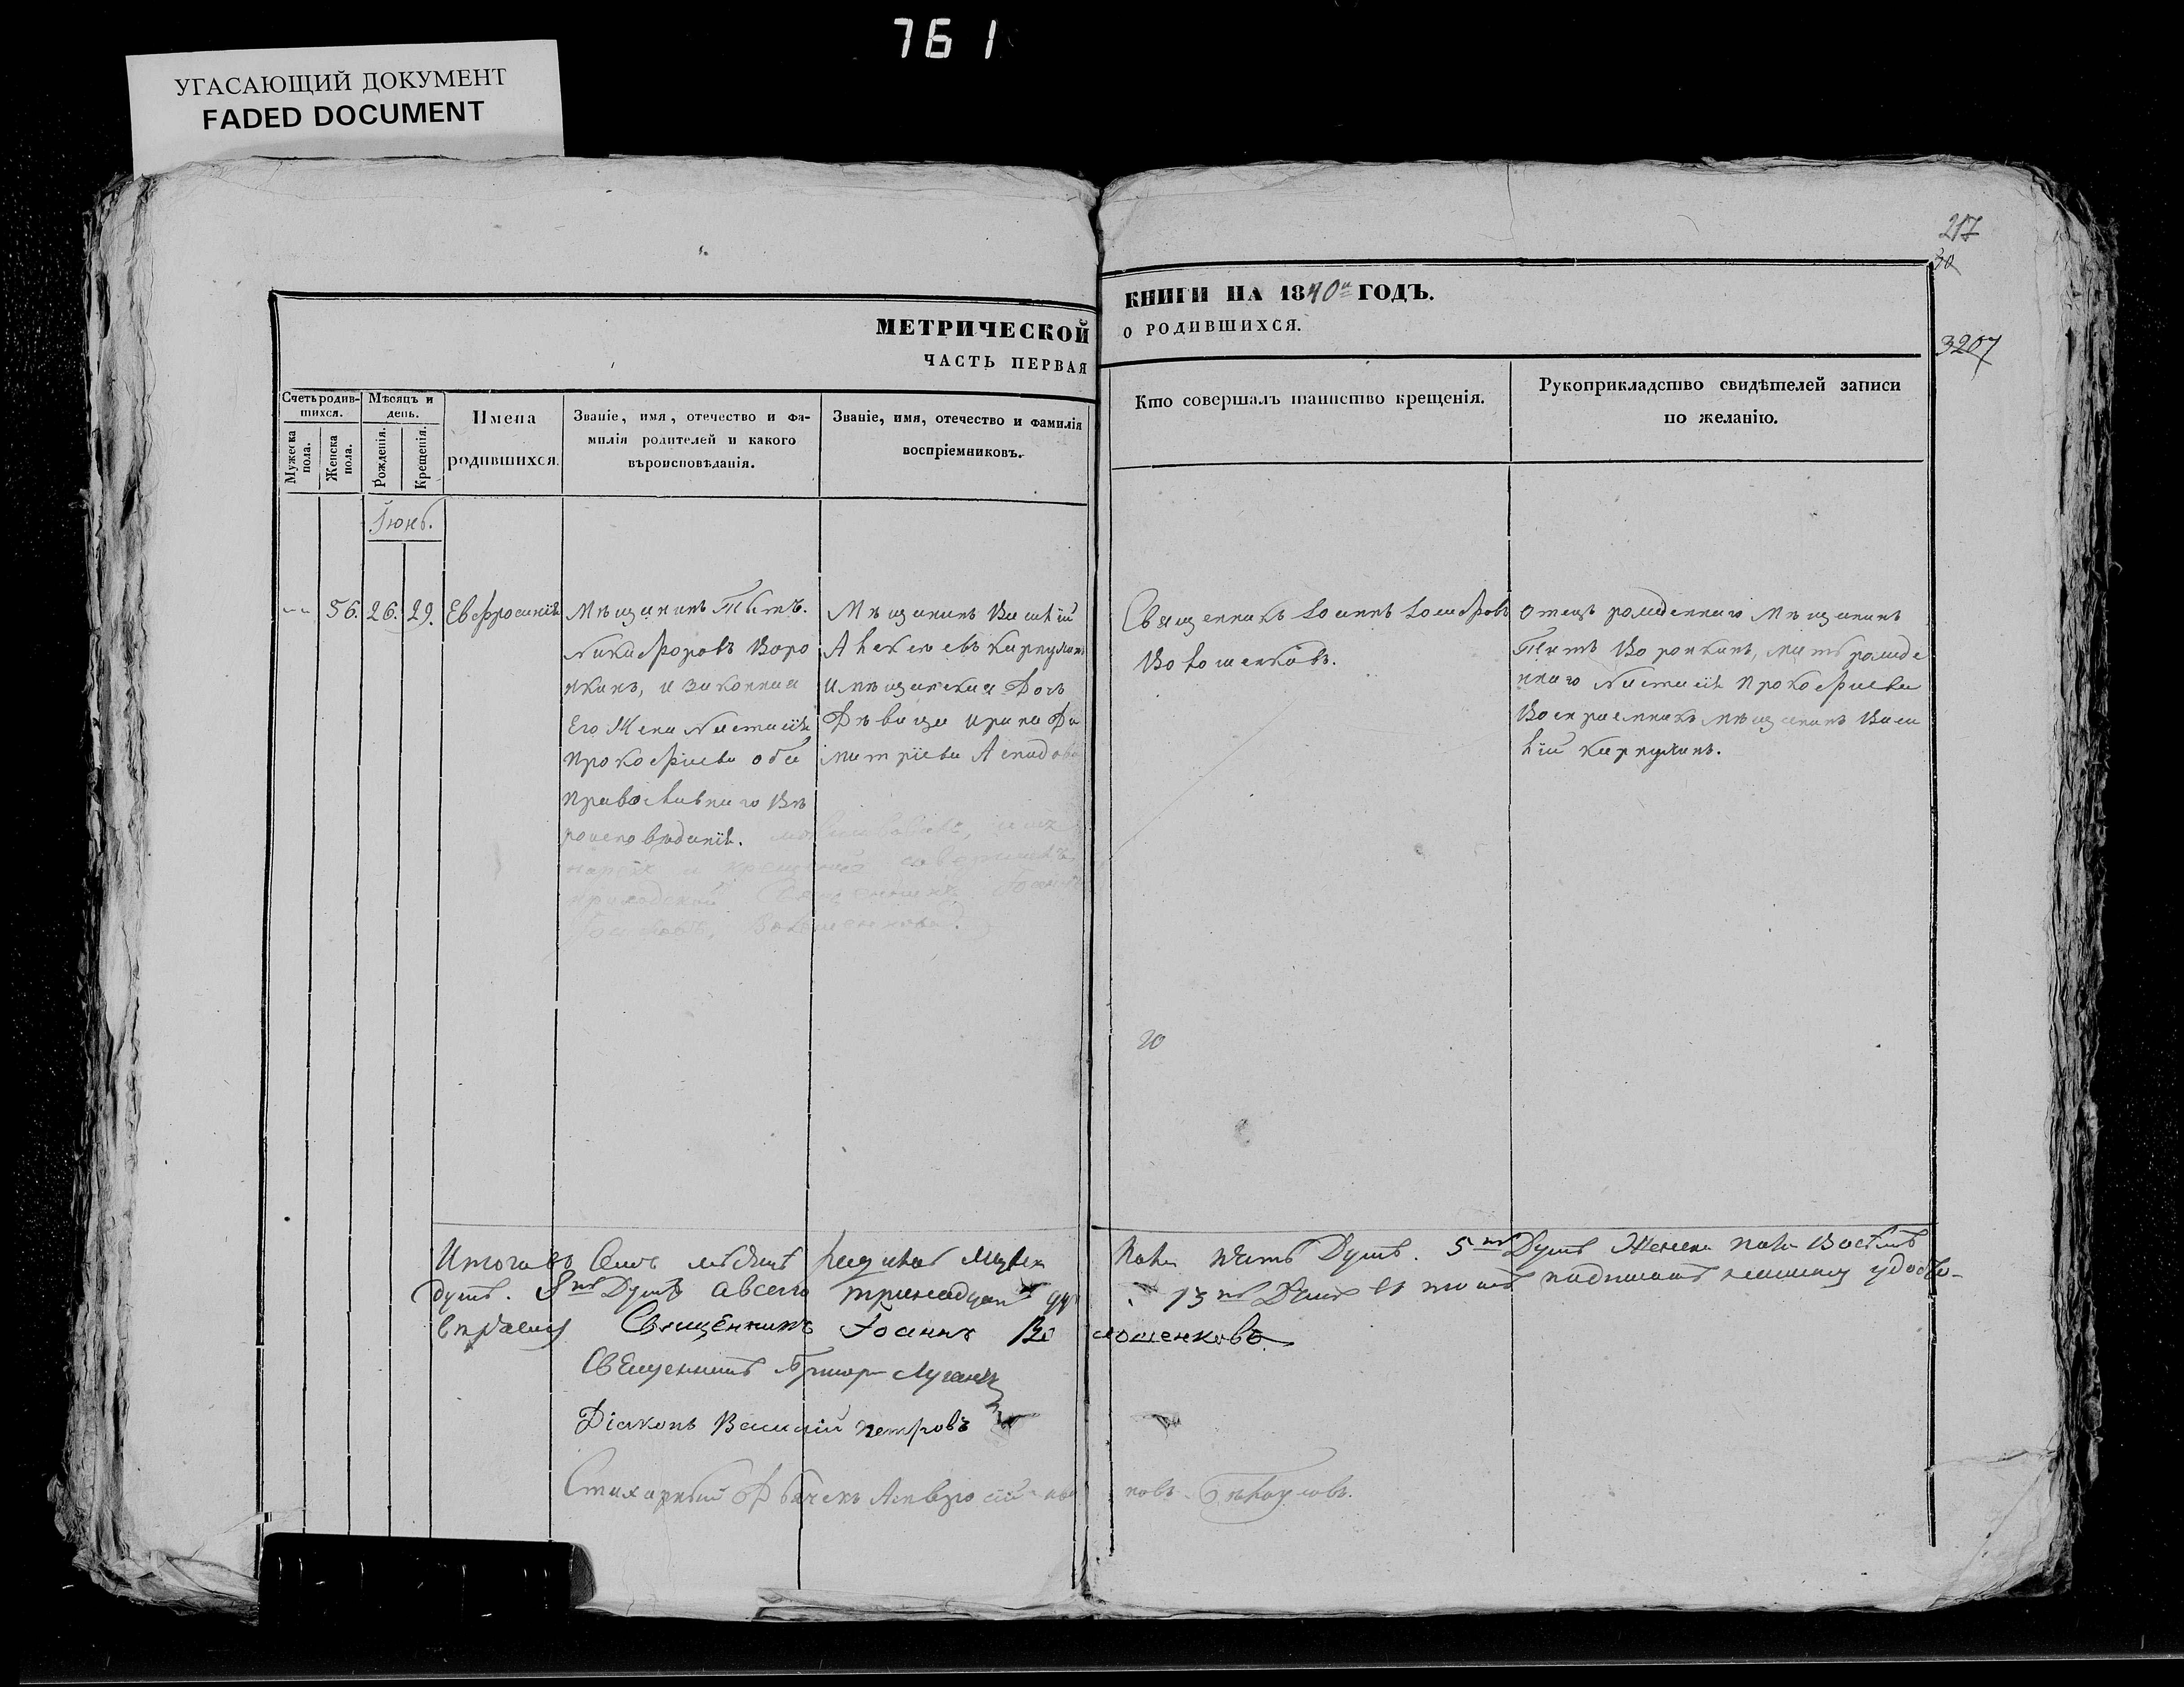 761
УГАСАЮЩИЙ ДОКУМЕНТ
FADED DOCUMENT
217
30
3207
МЕТРИЧЕСКОЙ
ЧАСТЬ ПЕРВАЯ
КНИГИ НА 1840й ГОДЪ.
О РОДИВШИХСЯ.
Счетъ родившихся.
Мужеска пола.
Женска пола.
Мѣсяцъ и день.
Рожденія.
Крещенія.
Имена
родившихся.
Званіе, имя, отечество и фа-
милія родителей и какого
вѣроисповѣданія.
Званіе, имя, отечество и фамилія
воспріемниковъ.
Кто совершалъ таинство крещенія.
Рукоприкладство свидѣтелей записи
по желанію.
Іюнь.
56.
26.
29.
Евфросинія
Мѣщанинъ Титъ.
Никифоровъ Воро
нкинъ, и законная
Его Жена Настасія
Прокофіева оба
Православнаго Вѣ
роисповѣданія.
Мѣщанинъ Василій
Алексѣевъ Карпухинъ
И мѣщанская Дочь
Дѣвица Ирина Ди
митріева
Священникъ Іоаннъ Іосифовъ
Волошенковъ.
Отецъ рожденнаго Мѣщанинъ
Титъ Воронкинъ, мать рожде
ннаго Настасія Прокофіева
Воспріемникъ мѣщанинъ Васи
лій Карпухинъ.
и крещеніе совершалъ
приходской Священникъ Іоаннъ
Іосифовъ Волошенковъ.
20
Итого въ семъ мѣсяцѣ родилось Мужеска Пола пять Душъ. 5ть Душъ Женска пола Восемь
душъ. 8мь Душъ А всего тринадцать 13ть Душъ въ томъ подписомъ нашимъ удосто-
вѣряемъ Священникъ Іоаннъ Волошенковъ
Священникъ Григор
Діаконъ Василій Петровъ
Стихарный Дьячекъ Амвросій